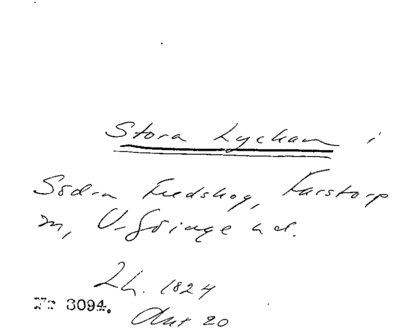 Stora Lyckan i
Södra Fredskog, Farstorp
m, V-Göinge hd.
Lh. 1824
Nr 3094.
Aus 20